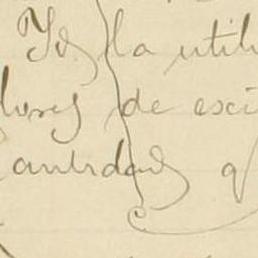 Yd la utili
lores de esci
antidad q